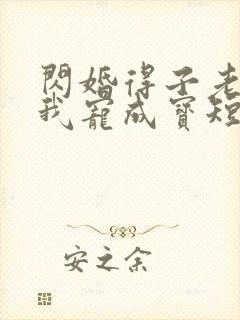 閃婚得子老
我寵成寶短
安之余